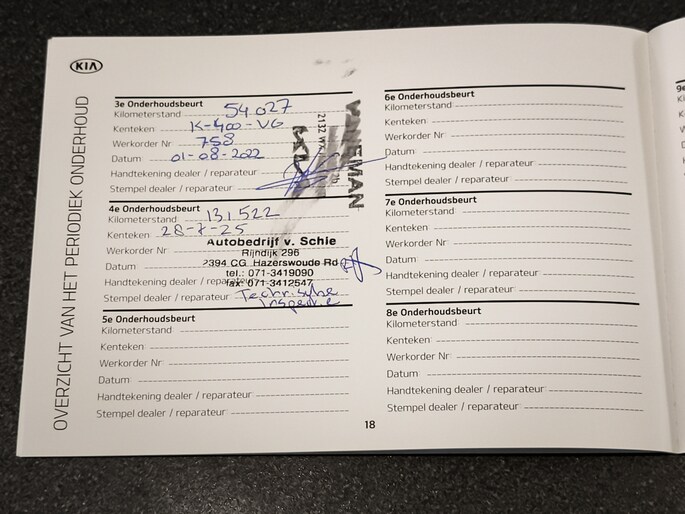 KIA
OVERZICHT VAN HET PERIODIEK ONDERHOUD
3e Onderhoudsbeurt
Kilometerstand 54.027
Kenteken: K-400-VG
Werkorder Nr 758
Datum: 01-08-2022
Handtekening dealer / reparateur
Stempel dealer / reparateur
2132
KIA
4e Onderhoudsbeurt
Kilometerstand 131.522
Kenteken: 28-7-25
Werkorder Nr:
Datum
Handtekening dealer / reparateur
Stempel dealer / reparateur
Autobedrijf v. Schie
Rijndijk 296
2394 CG Hazerswoude Rd
tel.: 071-3419090
fax 071-3412547
Technische
Inspectie
5e Onderhoudsbeurt
Kilometerstand
Kenteken:
Werkorder Nr:
Datum:
Handtekening dealer / reparateur:
Stempel dealer / reparateur:
6e Onderhoudsbeurt
Kilometerstand:
Kenteken:
Werkorder Nr:
Datum:
Handtekening dealer / reparateur
Stempel dealer / reparateur:
7e Onderhoudsbeurt
Kilometerstand
Kenteken:
Werkorder Nr:
Datum
Handtekening dealer / reparateur
Stempel dealer / reparateur:
8e Onderhoudsbeurt
Kilometerstand:
Kenteken:
Werkorder Nr:
Datum:
Handtekening dealer / reparateur:
Stempel dealer / reparateur:
18